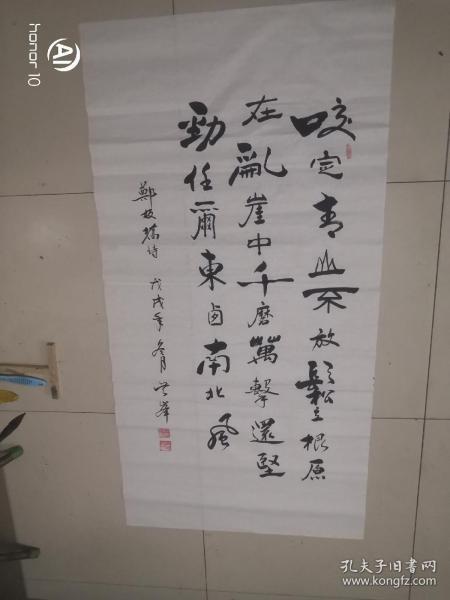 咬定青山不放鬆立根原
在亂崖中千磨萬擊還堅
勁任爾東卥南北風
鄭板橋詩 戊戌年冬月
honor 10
AI
孔夫子旧书网
www.kongfz.com